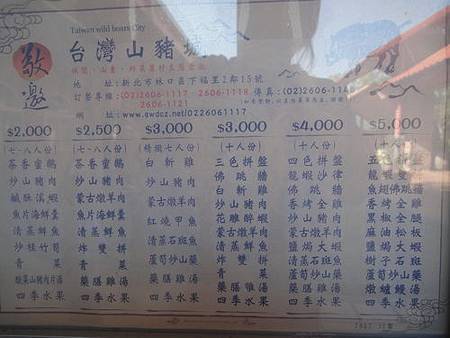 Taiwan wild boars City
敬邀
台灣山豬城
地 址:新北市林口區下福里2鄰15號
訂餐專線:(02)2606-1117 ‧ 2606-1118 傳真:
2606-1121
網 址:www.gwdcz.net/0226061117
$2,000
(七-八人份)
茶香蜜鵝
炒山豬肉
鹹酥溪蝦
魚片海鮮羹
清蒸鮮魚
炒桂竹筍
青菜
四季水果
$2,500
(七-八人份)
茶香蜜鵝
炒山豬肉
蒙古燉羊肉
魚片海鮮羹
清蒸鮮魚
炸雙拼
青菜
藥膳雞湯
四季水果
$3,000
(精緻七人份)
白斬雞
炒山豬肉
蒙古燉羊肉
紅燒甲魚
清蒸石斑魚
蘆筍炒山蘇
藥膳雞湯
四季水果
$3,000
(十人份)
三色拼盤
佛跳牆
白斬雞
炒山豬肉
花雕醉蝦
蒙古燉羊肉
清蒸鮮魚
炸雙拼
青菜
藥膳雞湯
四季水果
$4,000
(十人份)
四色拼盤
龍蝦沙律
佛跳牆
香烤全雞
炒山豬肉
蒙古燉羊肉
鹽焗大蝦
清蒸石斑魚
蘆筍炒山蘇
藥膳雞湯
四季水果
$5,000
(十人份)
魚翅佛跳牆
香烤全雞
黑椒全腿
麻油松板
鹽焗大蝦
樹子石斑
蘆筍炒山藥
燉鱸鰻湯
四季水果